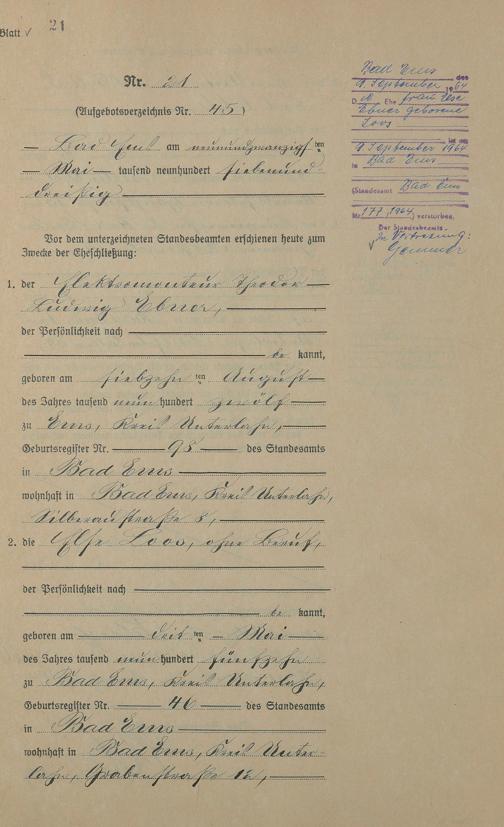 Blatt 21
Nr. 21
(Aufgebotsverzeichnis Nr. 45)
Bad Ems am neunundzwanzigsten
Mai tausend neunhundert siebenund-
dreißig
Vor dem unterzeichneten Standesbeamten erschienen heute zum
Zwecke der Eheschließung:
1. der Elektromonteur Theodor
Ludwig Ebner,
der Persönlichkeit nach
be kannt,
geboren am siebzehnten August
des Jahres tausend neunhundert zwölf
zu Ems, Kreis Unterlahn,
Geburtsregister Nr. 98 des Standesamts
in Bad Ems
wohnhaft in Bad Ems, Kreis Unterlahn,
Silberaustraße 8,
2. die Else Loos, ohne Beruf,
der Persönlichkeit nach
be kannt,
geboren am dritten Mai
des Jahres tausend neunhundert fünfzehn
zu Bad Ems, Kreis Unterlahn,
Geburtsregister Nr. 46 des Standesamts
in Bad Ems
wohnhaft in Bad Ems, Kreis Unter-
lahn, Grabenstraße 12,
Bad Ems, den
9. September 1964
D ie Ehefrau Else
Ebner geborene
Loos
ist am
9. September 1964
in Bad Ems
(Standesamt Bad Ems
Nr. 177/1964) verstorben.
Der Standesbeamte
In Vertretung: